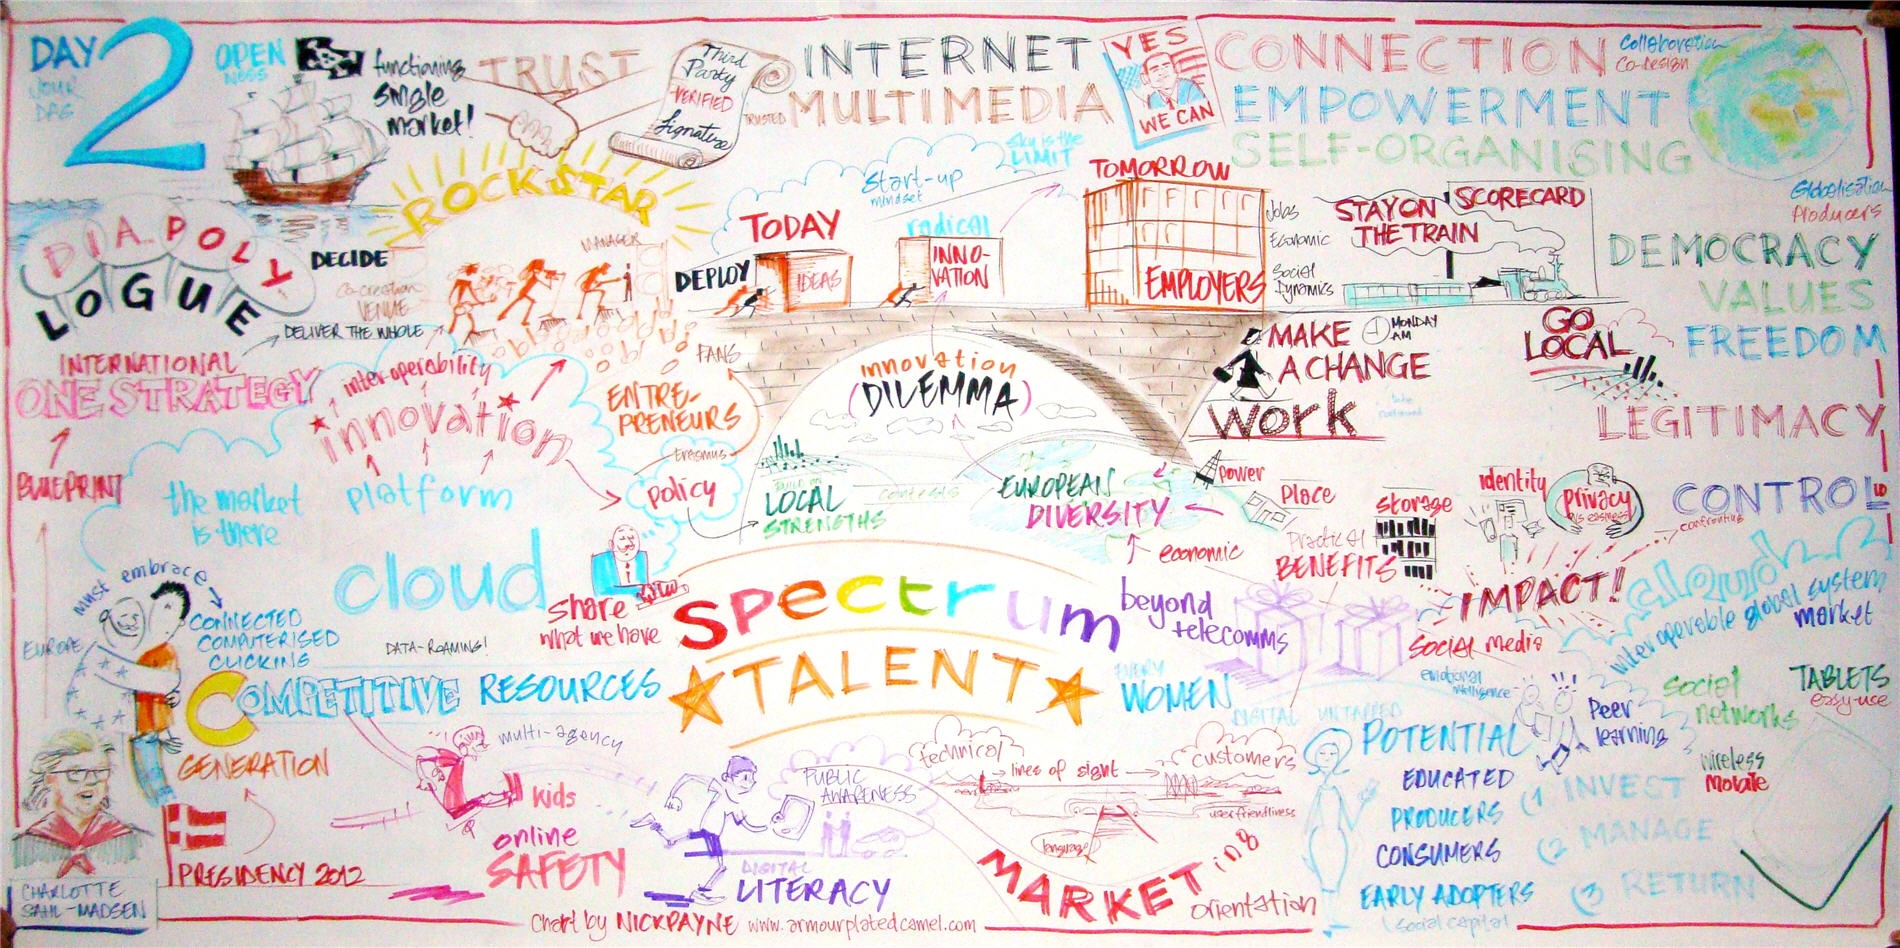 DAY
2
YOUR
DAG
OPEN
NESS
functioning
single
market!
TRUST
Third
Party
VERIFIED
Signature
TRUSTED
INTERNET
MULTIMEDIA
YES
WE CAN
CONNECTION
EMPOWERMENT
SELF-ORGANISING
Collaboration
Co-design
Globalisation
Producers
ROCKSTAR
MANAGER
DIAPOLY
LOGUE
DECIDE
Co-creation
VENUE
DELIVER THE WHOLE
FANS
sky is the
LIMIT
start-up
mindset
radical
TODAY
DEPLOY
IDEAS
INNO-
VATION
TOMORROW
EMPLOYERS
Jobs
Economic
Social
Dynamics
STAY ON
THE TRAIN
SCORECARD
DEMOCRACY
VALUES
FREEDOM
LEGITIMACY
CONTROL
confronting
INTERNATIONAL
ONE STRATEGY
BLUEPRINT
interoperability
innovation
platform
the market
is there
ENTRE-
PRENEURS
Erasmus
policy
innovation
(DILEMMA)
MAKE
A CHANGE
MONDAY
AM
WORK
GO
LOCAL
BUILD ON
LOCAL
STRENGTHS
contexts
EUROPEAN
DIVERSITY
economic
power
Place
storage
identity
privacy
Practical
BENEFITS
IMPACT!
social media
cloud
interoperable global system
market
must embrace
EUROPE
CONNECTED
COMPUTERISED
CLICKING
cloud
DATA-ROAMING!
share
what we have
spectrum
beyond
telecomms
COMPETITIVE RESOURCES
GENERATION
TALENT
EVERY
WOMEN
DIGITAL UNTAPPED
POTENTIAL
emotional
intelligence
Peer
learning
social
networks
TABLETS
easy-use
wireless
MOBILE
EDUCATED
PRODUCERS
CONSUMERS
EARLY ADOPTERS
social capital
(1 INVEST
(2 MANAGE
(3 RETURN
multi-agency
kids
online
SAFETY
PUBLIC
AWARENESS
DIGITAL
LITERACY
technical
lines of sight
customers
user friendliness
language
MARKETing
orientation
PRESIDENCY 2012
CHARLOTTE
SAHL-MADSEN
Chart by NICKPAYNE www.armourplatedcamel.com